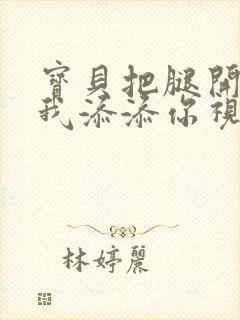 寶貝把腿開
我添添你視
林婷麗